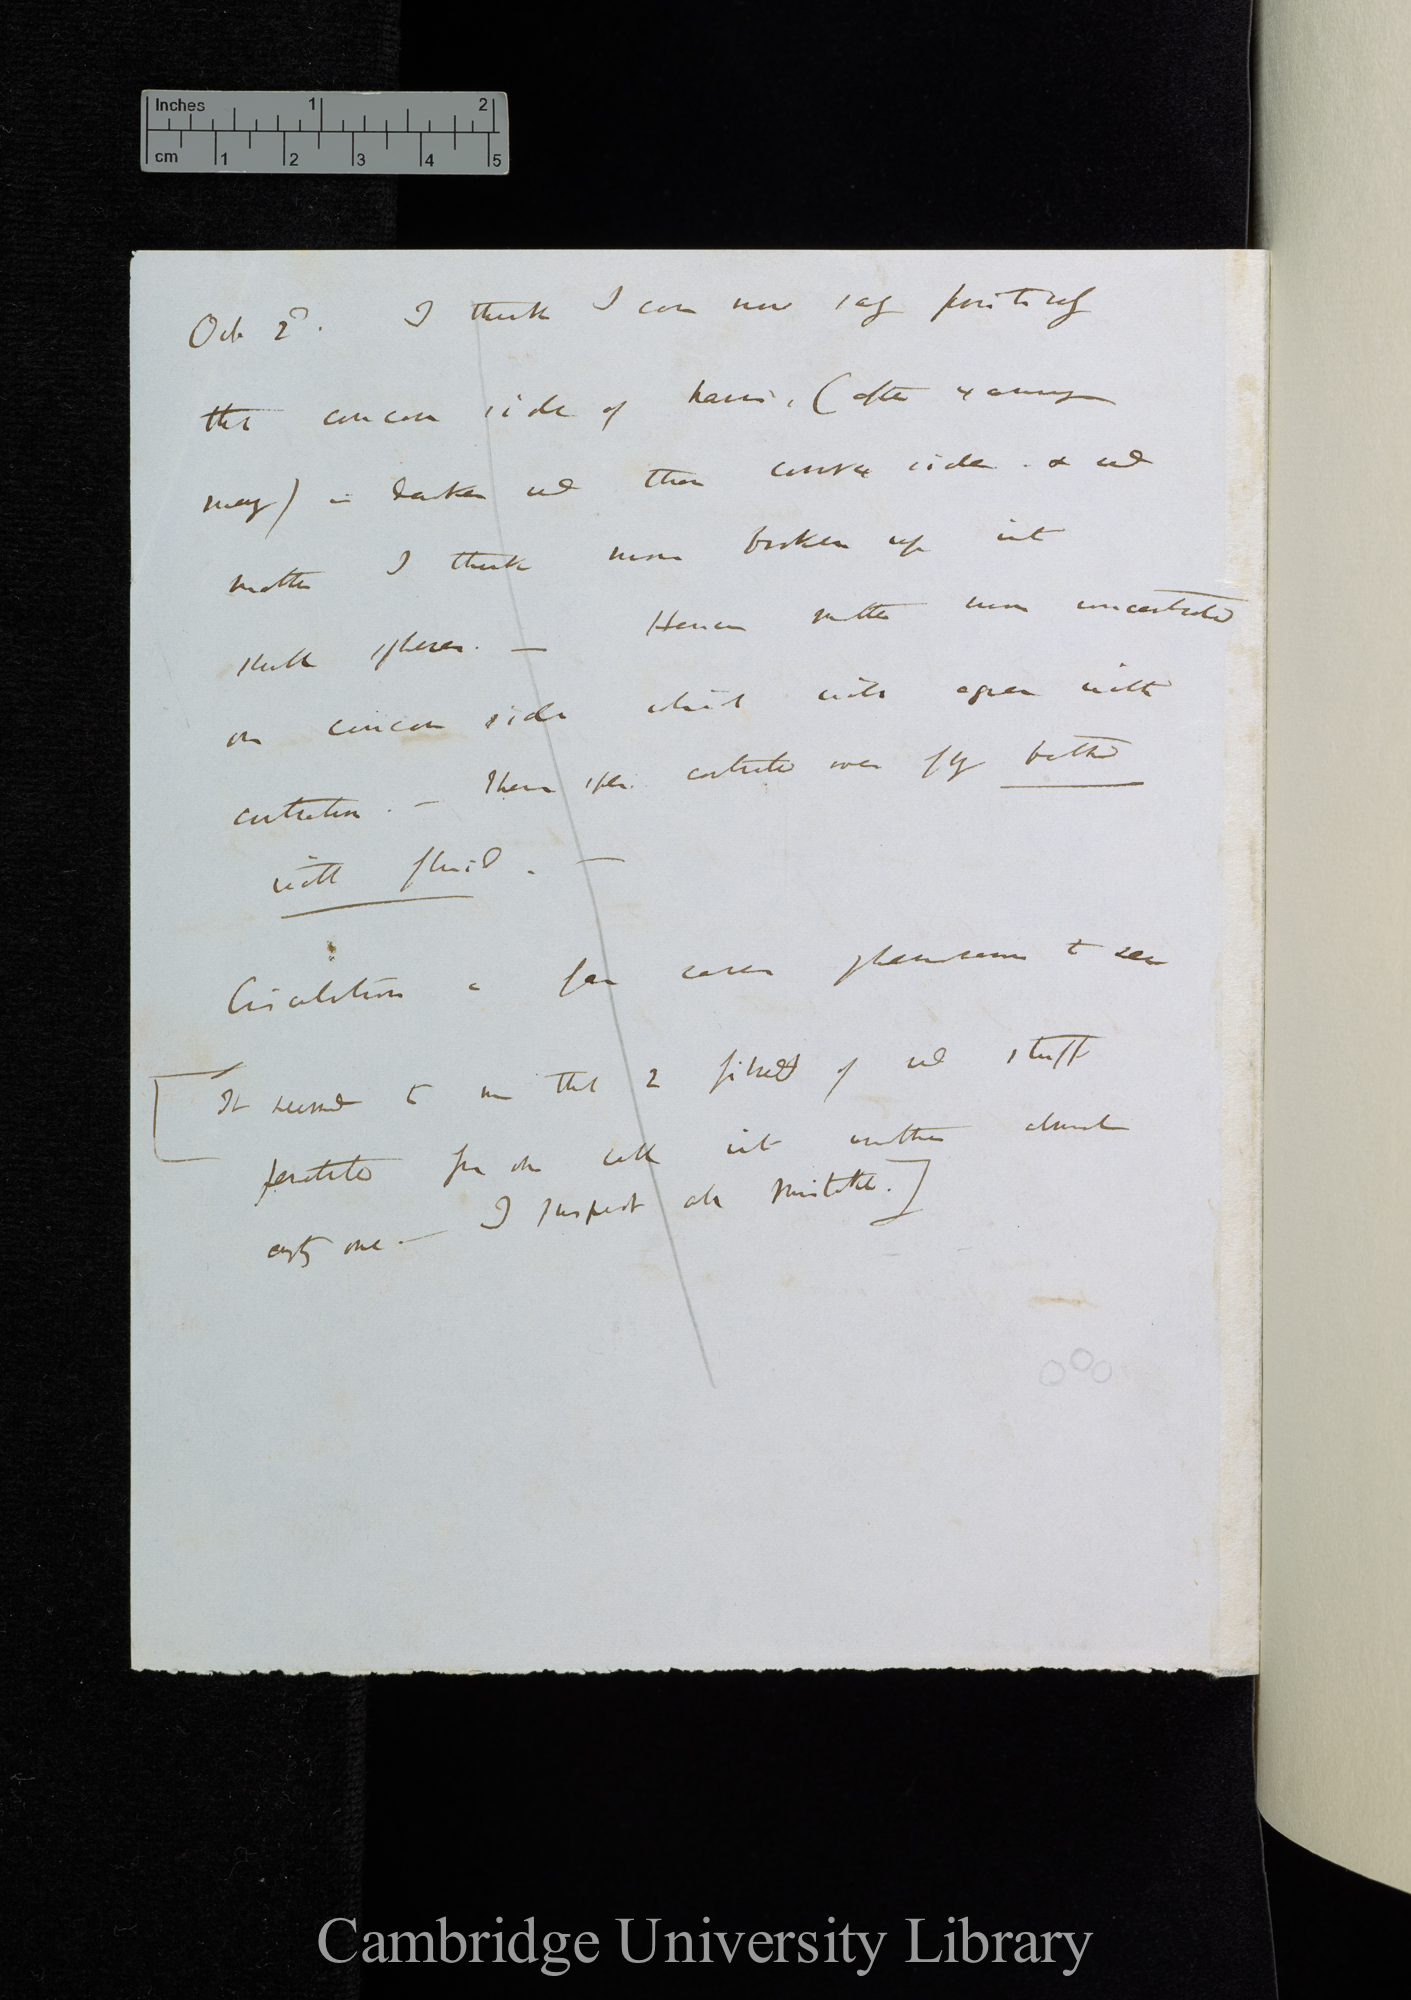 Inches 1 2
cm 1 2 3 4 5
Oct 2d. I think I can now say positively
that concave side of hairs, (after examining
many) is darker red than convex side. & red
matter I think more broken up into
little spheres. — Hence matter more concentrated
on concave side which agrees with
contraction. — These contracted over fly bathed
with fluid. —
Circulation a phenomenon to see
[It seemed to me that 2 of red stuff
from one cell into another almost
empty one. — I suspect all mistake.]
Cambridge University Library